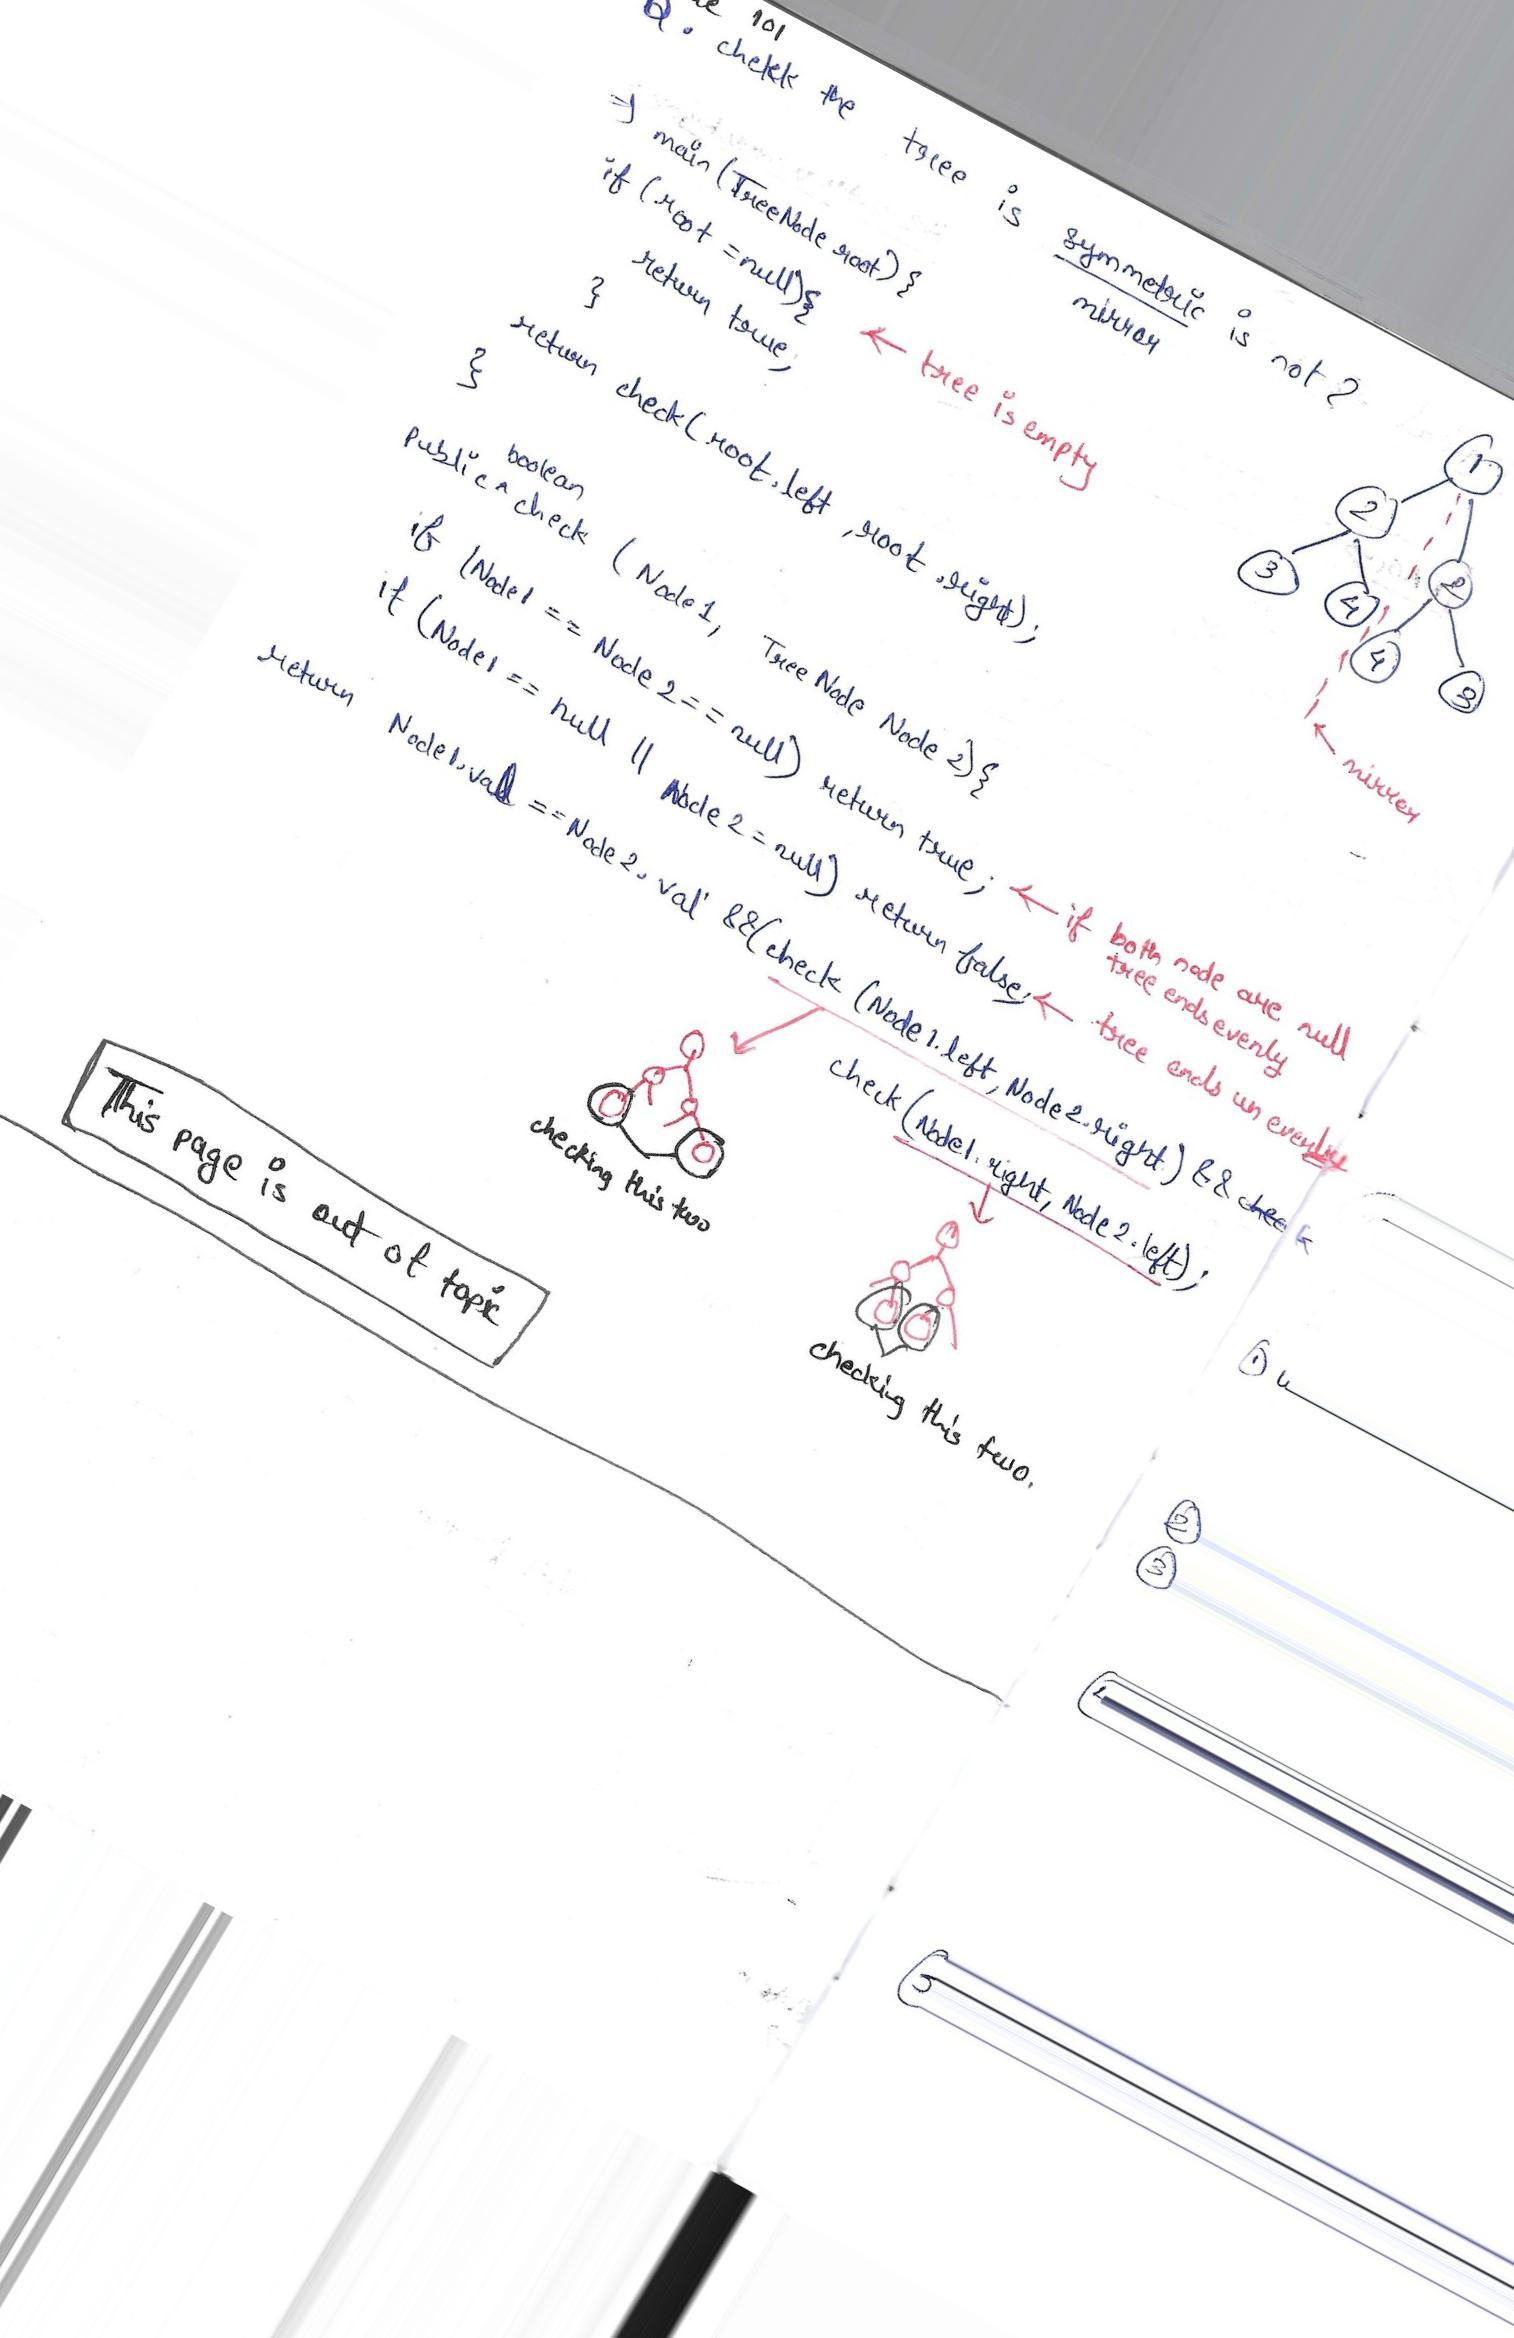 101
Q. chekk the tree is symmetric is not ?
mirror
=> main (TreeNode root) {
if (root = null) {
return true;
}
← tree is empty
return check (root.left , root .right);
}
public ^ boolean check (Node1, TreeNode Node 2) {
if (Node1 == Node 2 == null) return true;
← if both node are null
tree ends evenly
if (Node1 == null || Node 2 = null) return false;
← tree ends un evenly
return Node1.val == Node 2. val && (check (Node1.left, Node2.right) && check
check (Node1.right, Node2.left);
1
2
2
3
4
4
3
mirror
checking this two
checking this two.
This page is out of topic
1
2
3